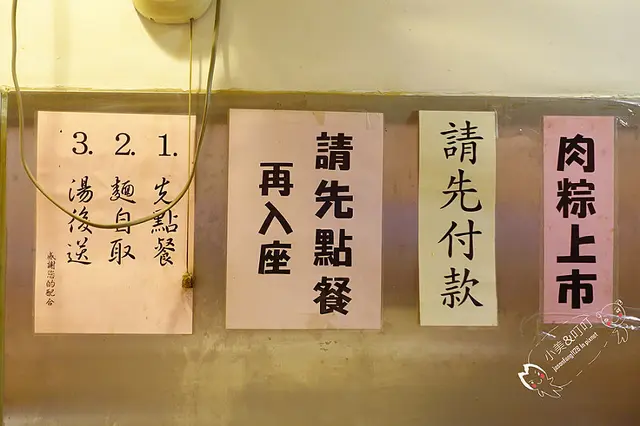 肉粽上市
請先付款
請先點餐
再入座
1. 先點餐
2. 麵自取
3. 湯後送
感謝您的配合
小美&叮叮
jasonfang1128 in planet